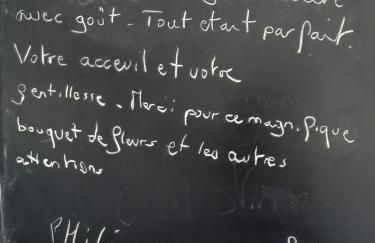 avec goût - Tout etant parfait.
Votre acceuil et votre
gentillesse. Merci pour ce magnifique
bouquet de fleurs et les autres
attentions